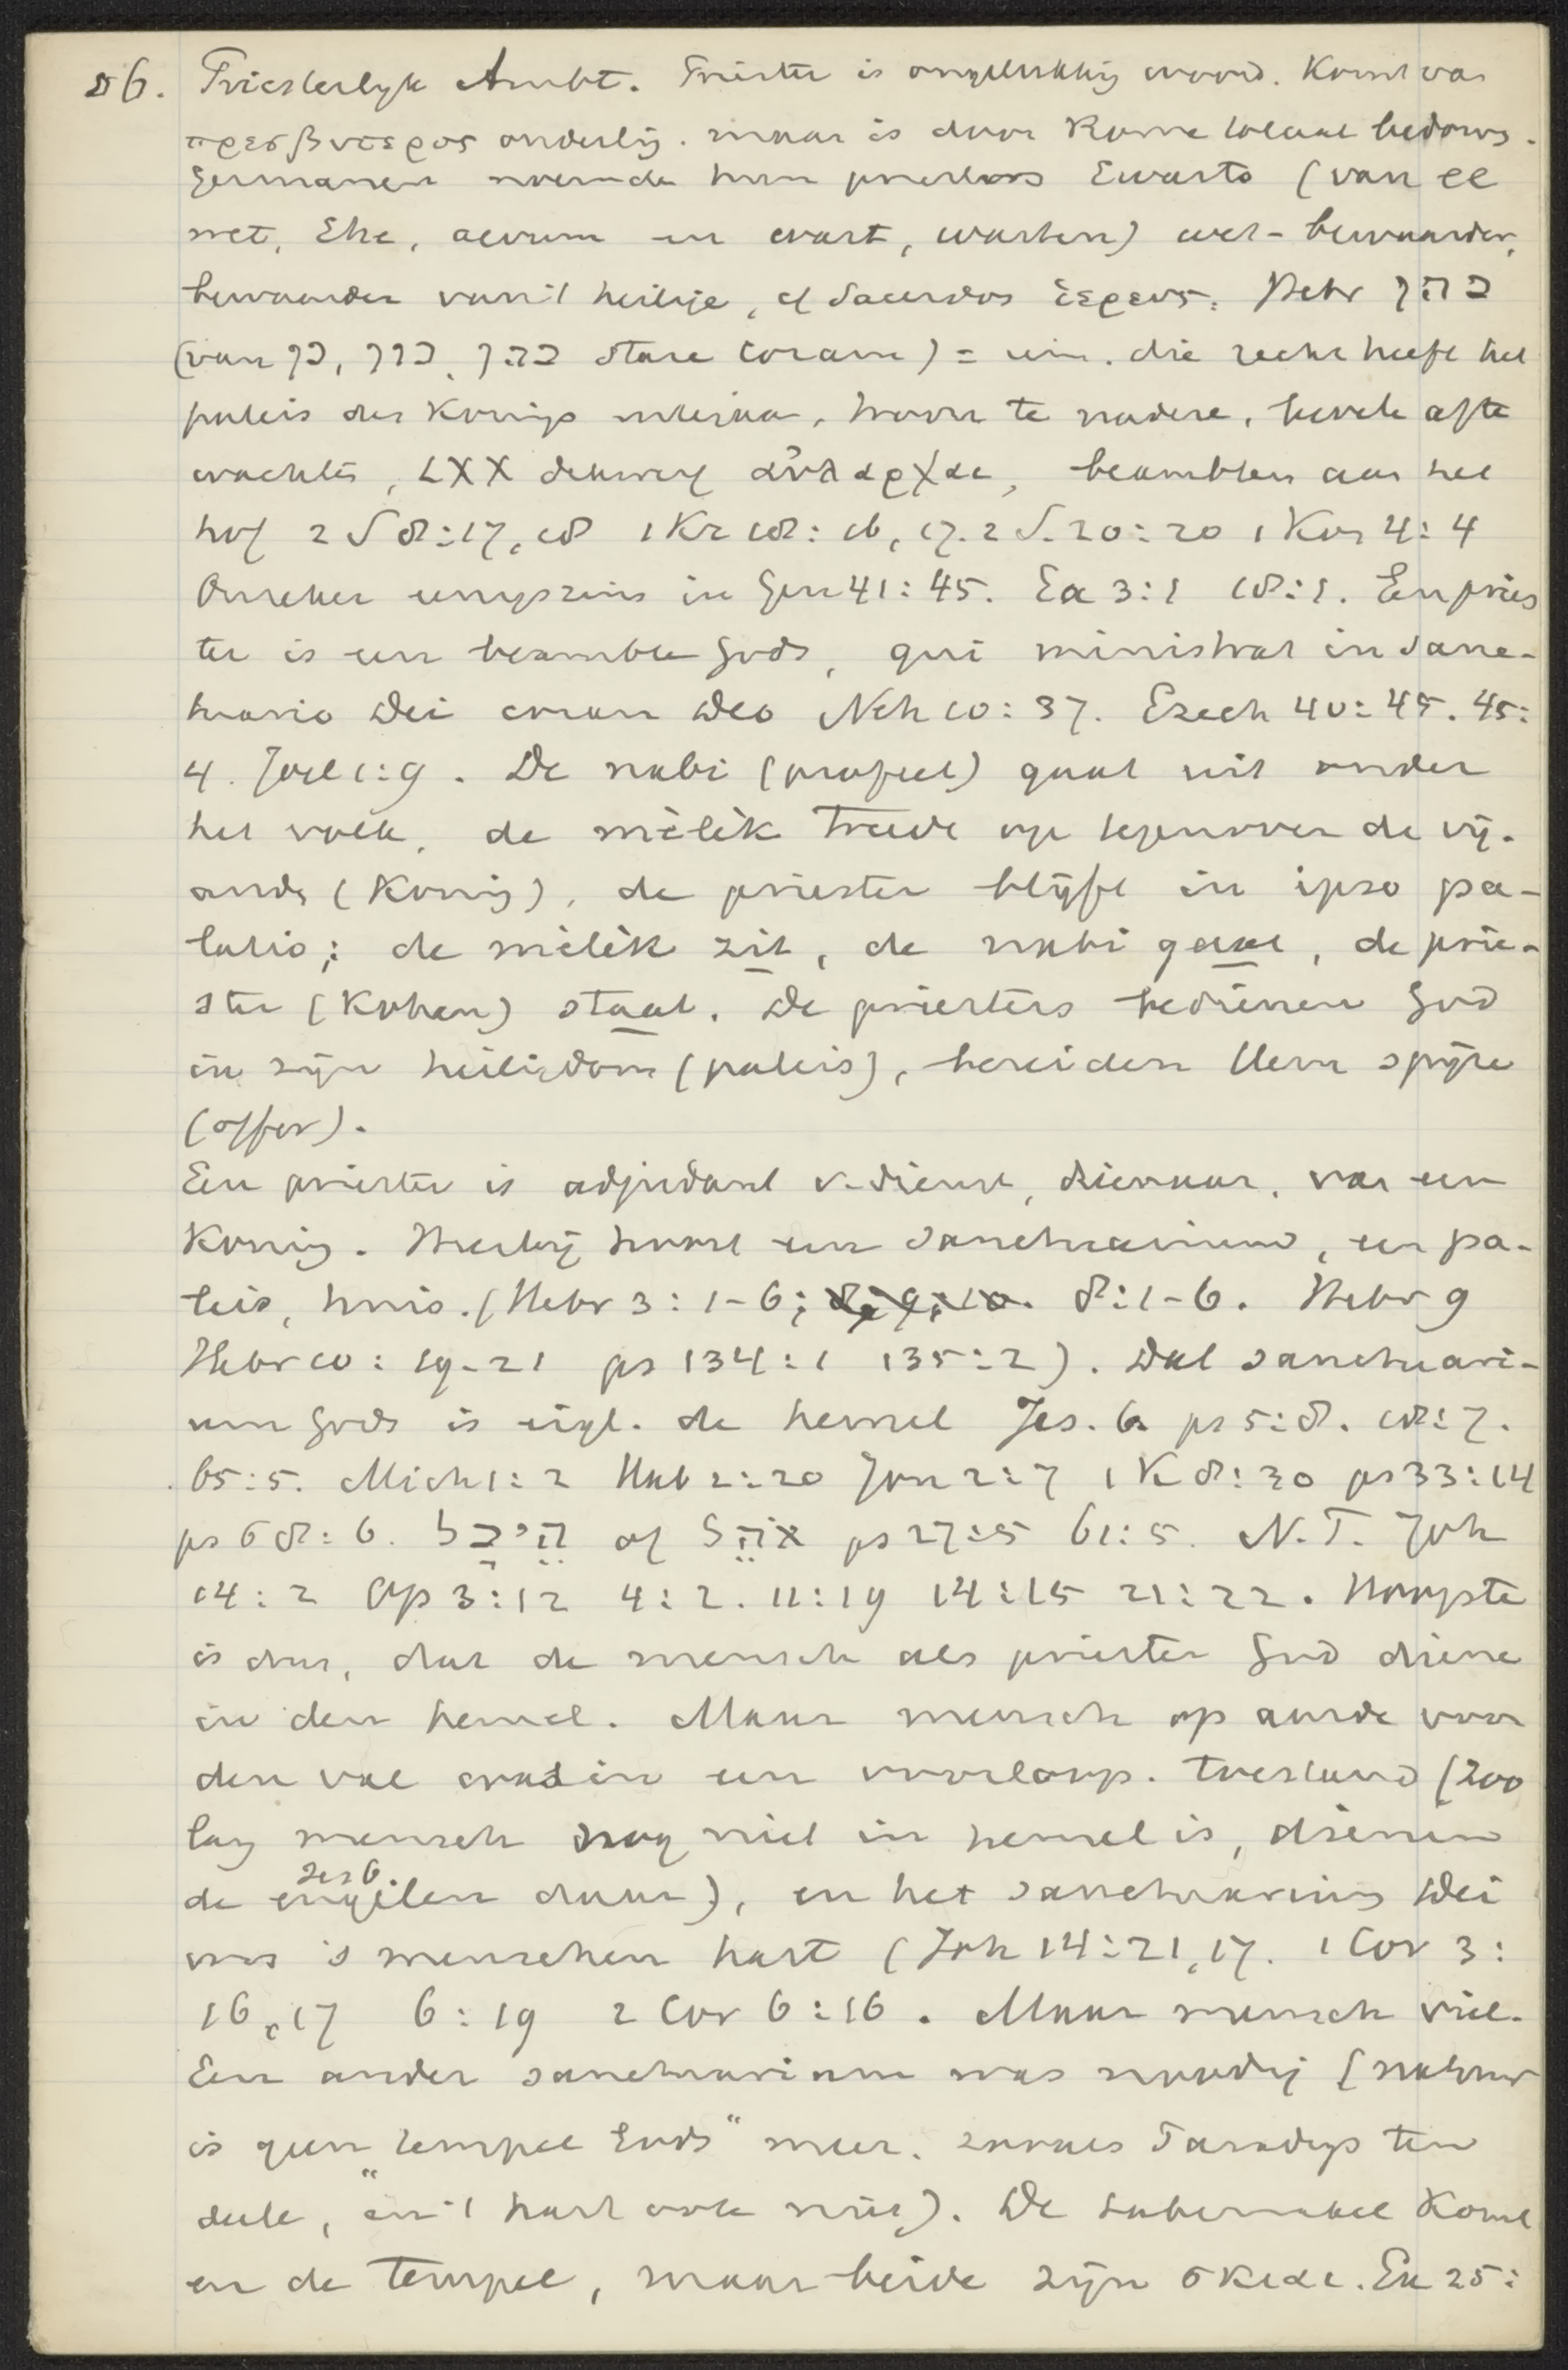 56. Priesterlyk Ambt. Priester is ongelukkig woord. Komt van
πρεσβυτερος ouderlig. maar is door Rome totaal bedorv.
Germanen noemde hun priesters Ewarto (van ee
wet, Ehe, aevum en wart, warten) wet-bewaarder,
bewaarder van 't heilige, cf Sacerdos ἱερευς. Hebr כהן
(van כן, כון, כהן stare coram) = iem. die recht heeft het
paleis des Konings binnen, hem te nadere, bevele af te
wachten, LXX αὐλαρχαι, beambten aan het
hof 2 S 8:17, 18 1 Kr 18:16, 17. 2 S. 20:20 1 Kon 4:4
Onzeker enigszins in Gen 41:45. Ex 3:1 18:1. Een pries
ter is een beambte Gods, qui ministrat in sanc-
tuario Dei coram Deo Neh 10:37. Ezech 40:45. 45:
4. Joel 1:9. De nabi (profeet) gaat uit onder
het volk, de mèlèk treedt op tegenover de vij-
ands (Konig), de priester blijft in ipso pa-
latio; de mèlèk zit, de nabi gaat, de prie-
ster (Kohen) staat. De priesters bedienen God
in zijn heiligdom (paleis), bereiden Hem spijze
(offer).
Een priester is adjudant v. dienst, dienaar, van een
Konig. Hierbij hoort een sanctuarium, een pa-
leis, huis. (Hebr 3:1-6; 8; 9; 10. 8:1-6. Hebr 9
Hebr 10:19-21 ps 134:1 135:2). Dat sanctuari-
um Gods is eigl. de hemel Jes. 6 ps 5:8. 18:7.
65:5. Mich 1:2 Hab 2:20 Jon 2:7 1 K 8:30 ps 33:14
ps 68:6. היכל of אהל ps 27:5 61:5. N.T. Joh
14:2 Op 3:12 4:2. 11:19 14:15 21:22. Hoogste
is dus, dat de mensch als priester God diene
in den hemel. Maar mensch op aarde voor
den val was in een voorloop. toestand (zoo
lang mensch nog niet in hemel is, dienen
Jes 6.
de engelen daar), en het sanctuarium Dei
was 's menschen hart (Joh 14:21, 17. 1 Cor 3:
16, 17 6:19 2 Cor 6:16. Maar mensch viel.
Een ander sanctuarium was noodig (natuur
is geen "tempel Gods" meer, zooals Paradys ten
deele, en 't hart ook niet). De tabernakel Komt
en de tempel, maar beide zijn σκιαι. Ex 25: